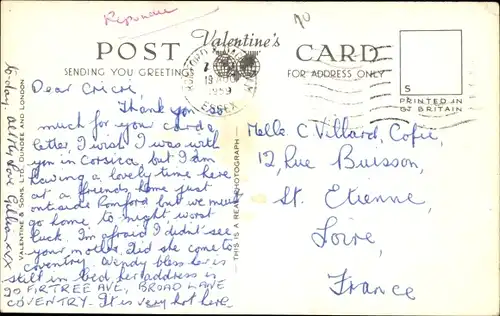 Repondue
POST Valentine's CARD
SENDING YOU GREETINGS FOR ADDRESS ONLY
ROMFORD
1959
ESSEX
S
PRINTED IN
GT BRITAIN
Dear Cricri,
Thank you
much for your card &
letter, I wish I was with
you in Corsica, but I am
having a lovely time here
at a friends home just
outside Romford but we must
go home to-night, worst
luck. I'm afraid I didn't see
your mother. Did she come to
Coventry. Wendy bless her is
still in bed her address is
90 FIRTREE AVE, BROAD LANE
COVENTRY. It is very hot here
today. All My Love Gillian XXX
VALENTINE & SONS, LTD., DUNDEE AND LONDON
THIS IS A REAL PHOTOGRAPH
Melle C Villard, Cofie,
12, Rue Buisson,
St. Etienne,
Loire,
France